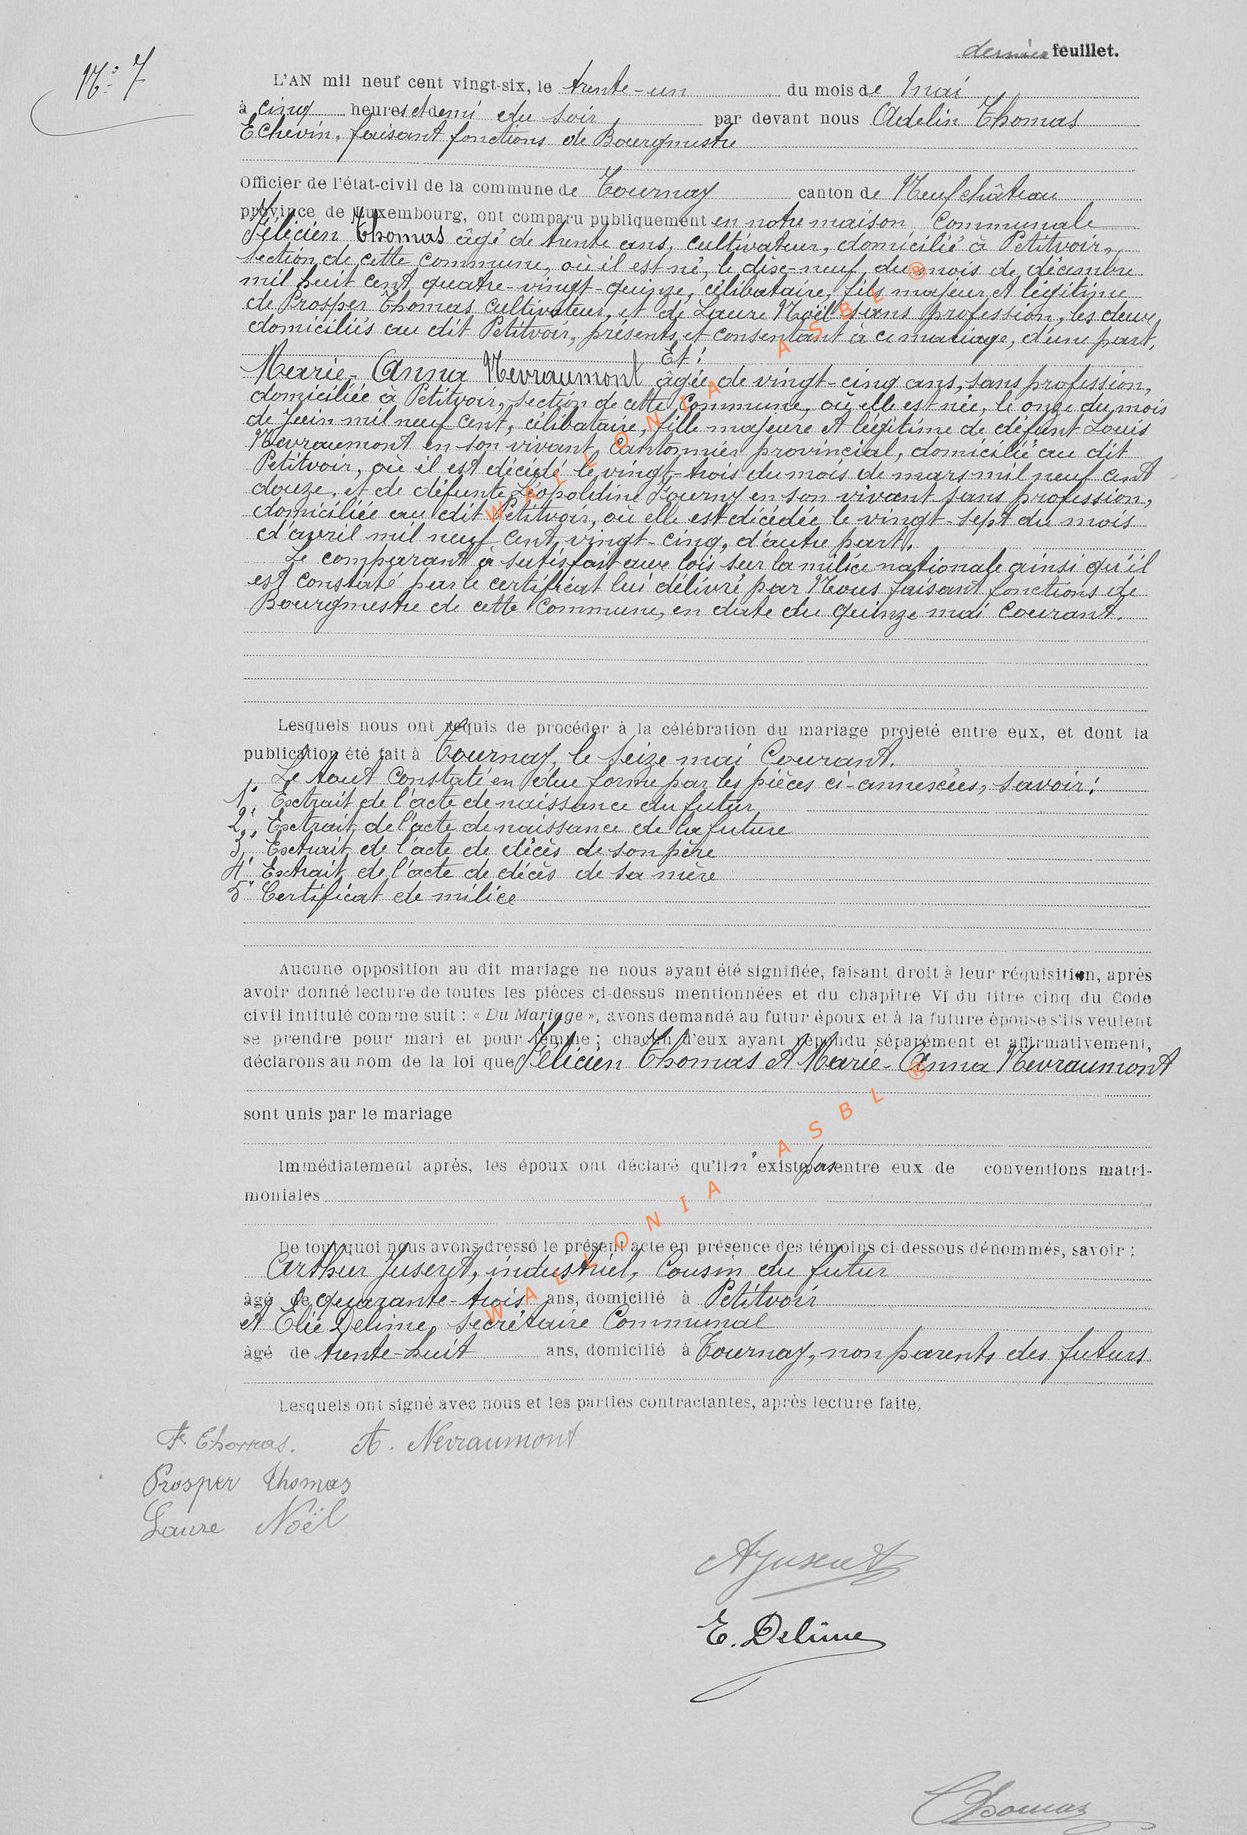 dernier feuillet.
N° 7
L'AN mil neuf cent vingt-six, le trente-un du mois de mai
à cinq heures et demi du soir par devant nous Adelin Thomas
Echevin, faisant fonctions de Bourgmestre
Officier de l'état-civil de la commune de Tournay canton de Neufchâteau
province de Luxembourg, ont comparu publiquement en notre maison Communale
Félicien Thomas âgé de trente ans, cultivateur, domicilié à Petitvoir,
section de cette commune, où il est né, le dix-neuf du mois de décembre
mil huit cent quatre-vingt-quinze, célibataire, fils majeur et légitime
de Prosper Thomas cultivateur, et de Laure Noël sans profession, les deux
domiciliés au dit Petitvoir, présents et consentant à ce mariage, d'une part,
Et:
Marie-Anna Nevraumont âgée de vingt-cinq ans, sans profession,
domiciliée à Petitvoir, section de cette Commune, où elle est née, le onze du mois
de Juin mil neuf cent, célibataire, fille majeure et légitime de défunt Louis
Nevraumont en son vivant Cantonnier provincial, domicilié au dit
Petitvoir, où il est décédé le vingt-trois du mois de mars mil neuf cent
douze, et de défunte Léopoldine Lourny en son vivant sans profession,
domiciliée au dit Petitvoir, où elle est décédée le vingt-sept du mois
d'avril mil neuf cent vingt-cinq, d'autre part.
Le comparant à satisfait aux lois sur la milice nationale ainsi qu'il
est constaté par le certificat lui délivré par Nous faisant fonctions de
Bourgmestre de cette Commune, en date du quinze mai Courant.
Lesquels nous ont requis de procéder à la célébration du mariage projeté entre eux, et dont la
publication été fait à Tournay, le seize mai Courant.
Le tout constaté en due forme par les pièces ci-annexées, savoir:
1° Extrait de l'acte de naissance du futur
2° Extrait de l'acte de naissance de la future
3° Extrait de l'acte de décès de son père
4° Extrait de l'acte de décès de sa mère
5° Certificat de milice
Aucune opposition au dit mariage ne nous ayant été signifiée, faisant droit à leur réquisition, après
avoir donné lecture de toutes les pièces ci-dessus mentionnées et du chapitre VI du titre cinq du Code
civil intitulé comme suit : « Du Mariage », avons demandé au futur époux et à la future épouse s'ils veulent
se prendre pour mari et pour femme ; chacun d'eux ayant répondu séparément et affirmativement,
déclarons au nom de la loi que Félicien Thomas et Marie-Anna Nevraumont
sont unis par le mariage
Immédiatement après, les époux ont déclaré qu'il n'existe pas entre eux de conventions matri-
moniales
De tout quoi nous avons dressé le présent acte en présence des témoins ci-dessous dénommés, savoir :
Arthur Juseret, industriel, Cousin du futur
âgé de quarante-trois ans, domicilié à Petitvoir
et Elie Delime, secrétaire Communal
âgé de trente-huit ans, domicilié à Tournay, non parents des futurs
Lesquels ont signé avec nous et les parties contractantes, après lecture faite.
F. Thomas. A. Nevraumont
Prosper Thomas
Laure Noël
A Juseret
E. Delime
Thomas
WALLONIA ASBL ®
WALLONIA ASBL ®